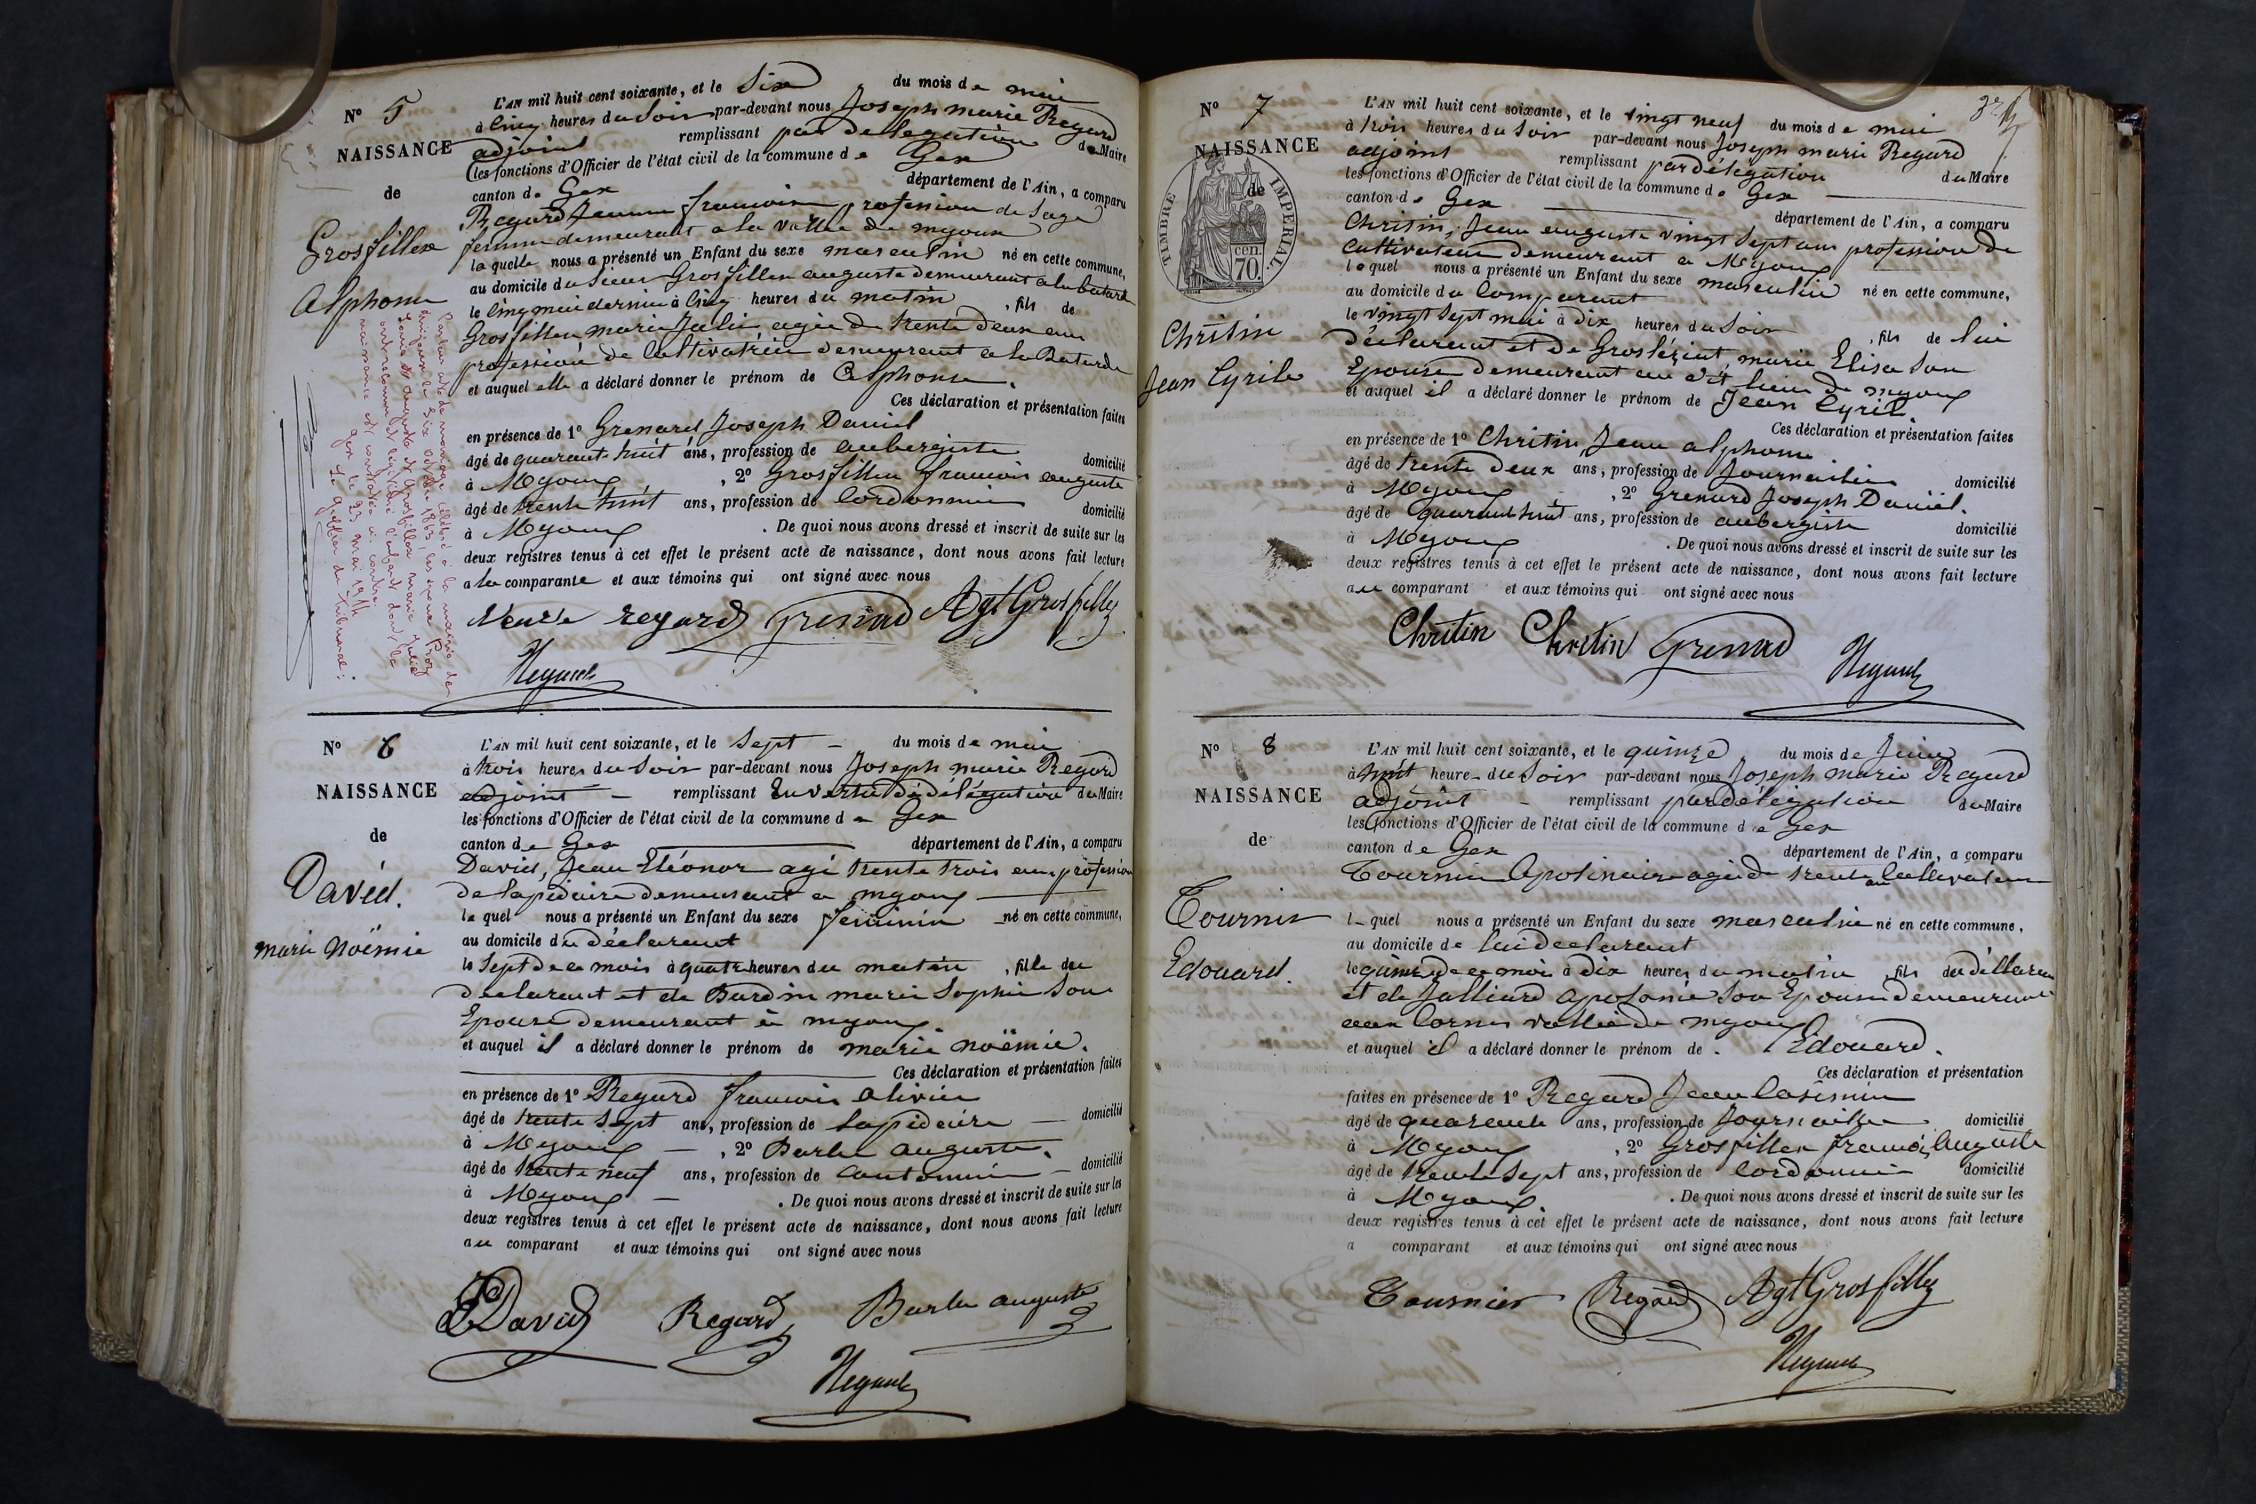 N° 5
NAISSANCE
de
Grosfillex
Alphonse
L'AN mil huit cent soixante, et le Six du mois de mai
à Cinq heures du Soir par-devant nous Joseph marie Regard
adjoint remplissant par delegation du Maire
les fonctions d'Officier de l'état civil de la commune de Gex
canton de Gex département de l'Ain, a comparu
Regard Jeanne francoise profession de Sage
femme demeurant a la vallée de mijoux
laquelle nous a présenté un Enfant du sexe masculin né en cette commune,
au domicile du Sieur Grosfillex auguste demeurant a la batarde
le Cinq mai dernier à Cinq heures du matin, fils de
Grosfillex marie Julie agée de trente deux ans
profession de Cultivatrice demeurant a la Batarde
et auquel elle a déclaré donner le prénom de Alphonse.
Ces déclaration et présentation faites
en présence de 1° Grenard Joseph Daniel
âgé de quarante huit ans, profession de aubergiste domicilié
à Mijoux, 2° Grosfillex francois auguste
âgé de trente huit ans, profession de Cordonnier domicilié
à Mijoux. De quoi nous avons dressé et inscrit de suite sur les
deux registres tenus à cet effet le présent acte de naissance, dont nous avons fait lecture
a la comparante et aux témoins qui ont signé avec nous
regard Grenard Agt Grosfilley
Regard
Par leur acte de mariage célébré à la mairie de
mijoux le six 1863 les époux
Louis auguste et Grosfillex marie Julie
ont reconnu et légitimé l'enfant dont la
naissance est constatée ci contre
Gex le 23 mai 1914
Le Greffier du tribunal:
N° 6
NAISSANCE
de
David.
marie Noëmie
L'AN mil huit cent soixante, et le Sept du mois de mai
à trois heures du Soir par-devant nous Joseph marie Regard
adjoint remplissant En vertu de délégation du Maire
les fonctions d'Officier de l'état civil de la commune de Gex
canton de Gex département de l'Ain, a comparu
David, Jean Eléonor agé trente trois ans profession
de lapidaire demeurant a mijoux
lequel nous a présenté un Enfant du sexe feminin né en cette commune,
au domicile du déclarant
le Sept de ce mois à quatre heures du matin, fille du
declarant et de Burdin marie Sophie Son
Epouse demeurant à mijoux
et auquel il a déclaré donner le prénom de marie noëmie.
Ces déclaration et présentation faites
en présence de 1° Regard francois Olivier
âgé de trente sept ans, profession de lapidaire domicilié
à Mijoux, 2° Barbe auguste.
âgé de trente neuf ans, profession de Cantonnier domicilié
à Mijoux. De quoi nous avons dressé et inscrit de suite sur les
deux registres tenus à cet effet le présent acte de naissance, dont nous avons fait lecture
au comparant et aux témoins qui ont signé avec nous
David Regard Barbe auguste
Regard
3e
N° 7
NAISSANCE
de
TIMBRE IMPERIAL.
70. cen.
Chritin
Jean Cyrile
L'AN mil huit cent soixante, et le vingt neuf du mois de mai
à trois heures du Soir par-devant nous Joseph marie Regard
adjoint remplissant par délégation du Maire
les fonctions d'Officier de l'état civil de la commune de Gex
canton de Gex département de l'Ain, a comparu
Chritin, Jean auguste vingt sept ans profession de
Cultivateur demeurant a Mijoux
lequel nous a présenté un Enfant du sexe masculin né en cette commune,
au domicile du Comparant
le vingt sept mai à dix heures du Soir, fils de lui
déclarant et de Grosléziat, marie Elisa Son
Epouse demeurant au dit lieu de mijoux
et auquel il a déclaré donner le prénom de Jean Cyril.
Ces déclaration et présentation faites
en présence de 1° Chritin, Jean alphonse
âgé de trente deux ans, profession de Journalier domicilié
à Mijoux, 2° Grenard Joseph Daniel.
âgé de quarante huit ans, profession de aubergiste domicilié
à Mijoux. De quoi nous avons dressé et inscrit de suite sur les
deux registres tenus à cet effet le présent acte de naissance, dont nous avons fait lecture
au comparant et aux témoins qui ont signé avec nous
Chritin Chritin Grenard
Regard
N° 8
NAISSANCE
de
Tournier
Edouard.
L'AN mil huit cent soixante, et le quinze du mois de Juin
à huit heure du Soir par-devant nous Joseph marie Regard
adjoint remplissant par délégation du Maire
les fonctions d'Officier de l'état civil de la commune de Gex
canton de Gex département de l'Ain, a comparu
Tournier Apolinaire agé de trente ans Cultivateur
lequel nous a présenté un Enfant du sexe masculin né en cette commune,
au domicile de lui declarant
le quinze de ce mois à dix heures du matin, fils du déclarant
et de Julliard Apolonie Son Epouse demeurant
aux Cornes vallée de mijoux
et auquel il a déclaré donner le prénom de. Edouard.
Ces déclaration et présentation
faites en présence de 1° Regard Jean Casimir
âgé de quarante ans, profession de Journalier domicilié
à Mijoux, 2° Grosfillex francois Auguste
âgé de trente sept ans, profession de Cordonnier domicilié
à Mijoux. De quoi nous avons dressé et inscrit de suite sur les
deux registres tenus à cet effet le présent acte de naissance, dont nous avons fait lecture
a comparant et aux témoins qui ont signé avec nous
Tournier Regard Agt Grosfilley
Regard